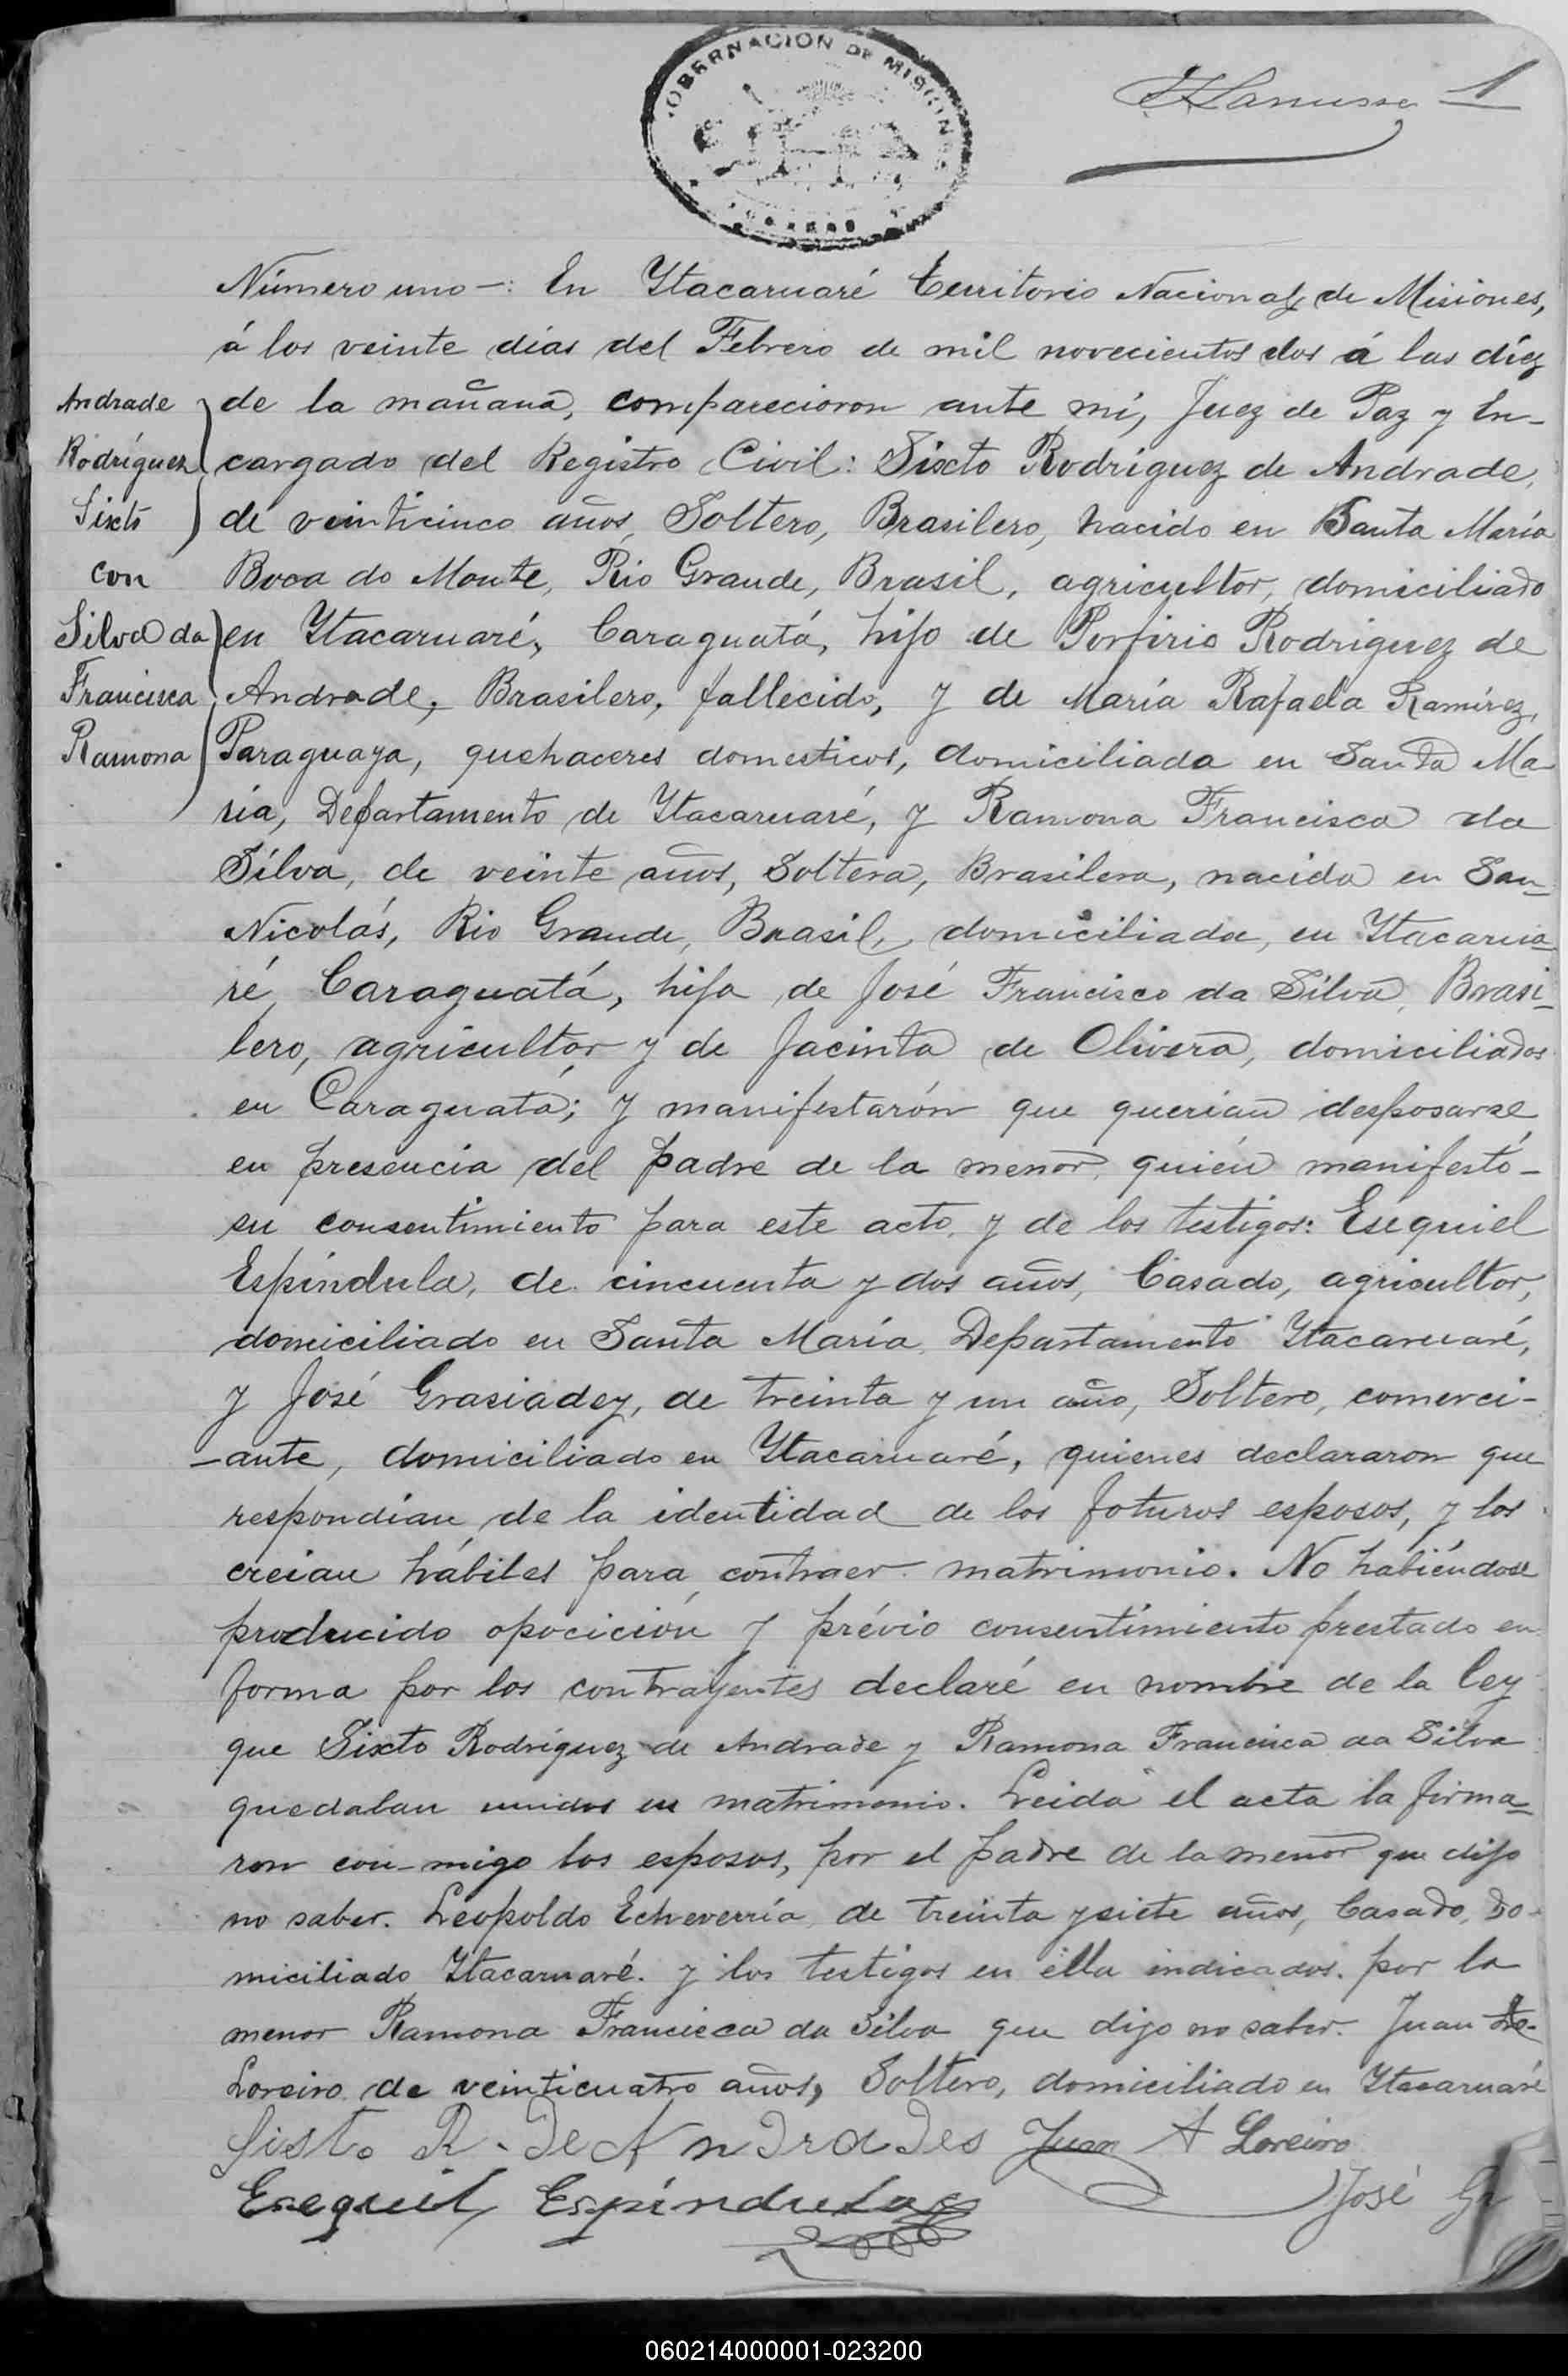 GOBERNACION DE MISIONES
JLanusse 1
Número uno-: En Ytacaruaré Territorio Nacional de Misiones,
á los veinte días del Febrero de mil novecientos dos á las díez
de la mañana, comparecioron ante mí, Juez de Paz y En-
cargado del Registro Civil: Sixto Rodríguez de Andrade,
de veinticinco años, Soltero, Brasilero, nacido en Santa María
Boca do Monte, Rio Grande, Brasil, agricultor, domiciliado
en Ytacaruaré, Caraguatá, hijo de Porfirio Rodriguez de
Andrade, Brasilero, fallecido, y de María Rafaela Ramírez,
Paraguaya, quehaceres domesticos, domiciliada en Santa Ma
ría, Departamento de Ytacaruaré, y Ramona Francisca da
Silva, de veinte años, Soltera, Brasilera, nacida en San
Nicolás, Rio Grande, Brasil, domiciliada, en Ytacarua
ré, Caraguatá, hija de José Francisco da Silva, Brasi-
lero, agricultor y de Jacinta de Olivera, domiciliados
en Caraguatá; y manifestarón que querian desposarse
en presencia del padre de la menor, quién manifestó-
su consentimiento para este acto, y de los testigos: Esequiel
Espíndula, de cincuenta y dos años, Casado, agricultor,
domiciliado en Santa María, Departamento Ytacaruaré,
y José Grasiadey, de treinta y un año, Soltero, comerci-
-ante, domiciliado en Ytacaruaré, quienes declararon que
respondian de la identidad de los foturos esposos, y los
creian hábiles para contraer matrimonio. No habiéndose
producido opocición y prévio consentimiento prestado en
forma por los contrayentes declaré en nombre de la ley
que Sixto Rodríguez de Andrade y Ramona Francisca da Silva
quedaban unidos en matrimonio. Leida el acta la firma-
ron con-migo los esposos, por el padre de la menor que dijo
no saber. Leopoldo Echeverría, de treinta y siete años, Casado, do-
miciliado Ytacaruaré. y los testigos en ella indicados. por la
menor Ramona Francisca da Silva que dijo no saber. Juan
Loreiro de veinticuatro años, Soltero, domiciliado en Ytacaruaré
Andrade
Rodríguez
Sixto
con
Silva da
Francisca
Ramona
Sisto R. de Andrades Juan A Loreiro
Esequiel Espíndula José
060214000001-023200